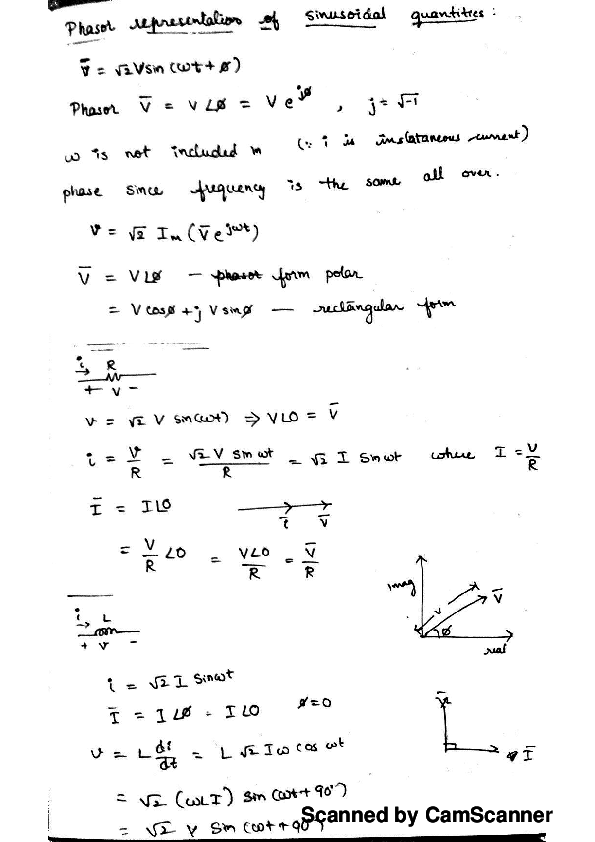 Phasor representation of sinusoidal quantities :
V̅ = √2 V sin (ωt + ø)
Phasor V̅ = V ∠ø = V e^jø , j = √-1
ω is not included in (∵ i is instataneous current)
phase since frequency is the same all over.
v = √2 Im (V̅ e^jωt)
V̅ = V∠ø — phasor form polar
= V cosø + j V sinø — rectangular form
i R
+ V -
v = √2 V sin(ωt) ⇒ V∠0 = V̅
i = v/R = √2 V sin ωt / R = √2 I sin ωt where I = V/R
I̅ = I∠0
i̅ V̅
= V/R ∠0 = V∠0/R = V̅/R
Imag V V̅ ø real
i L
+ v -
i = √2 I sinωt
I̅ = I∠ø = I∠0 ø=0
V̅ I̅
v = L di/dt = L √2 Iω cos ωt
= √2 (ωLI) sin (ωt + 90°)
= √2 V sin (ωt + 90°)
Scanned by CamScanner